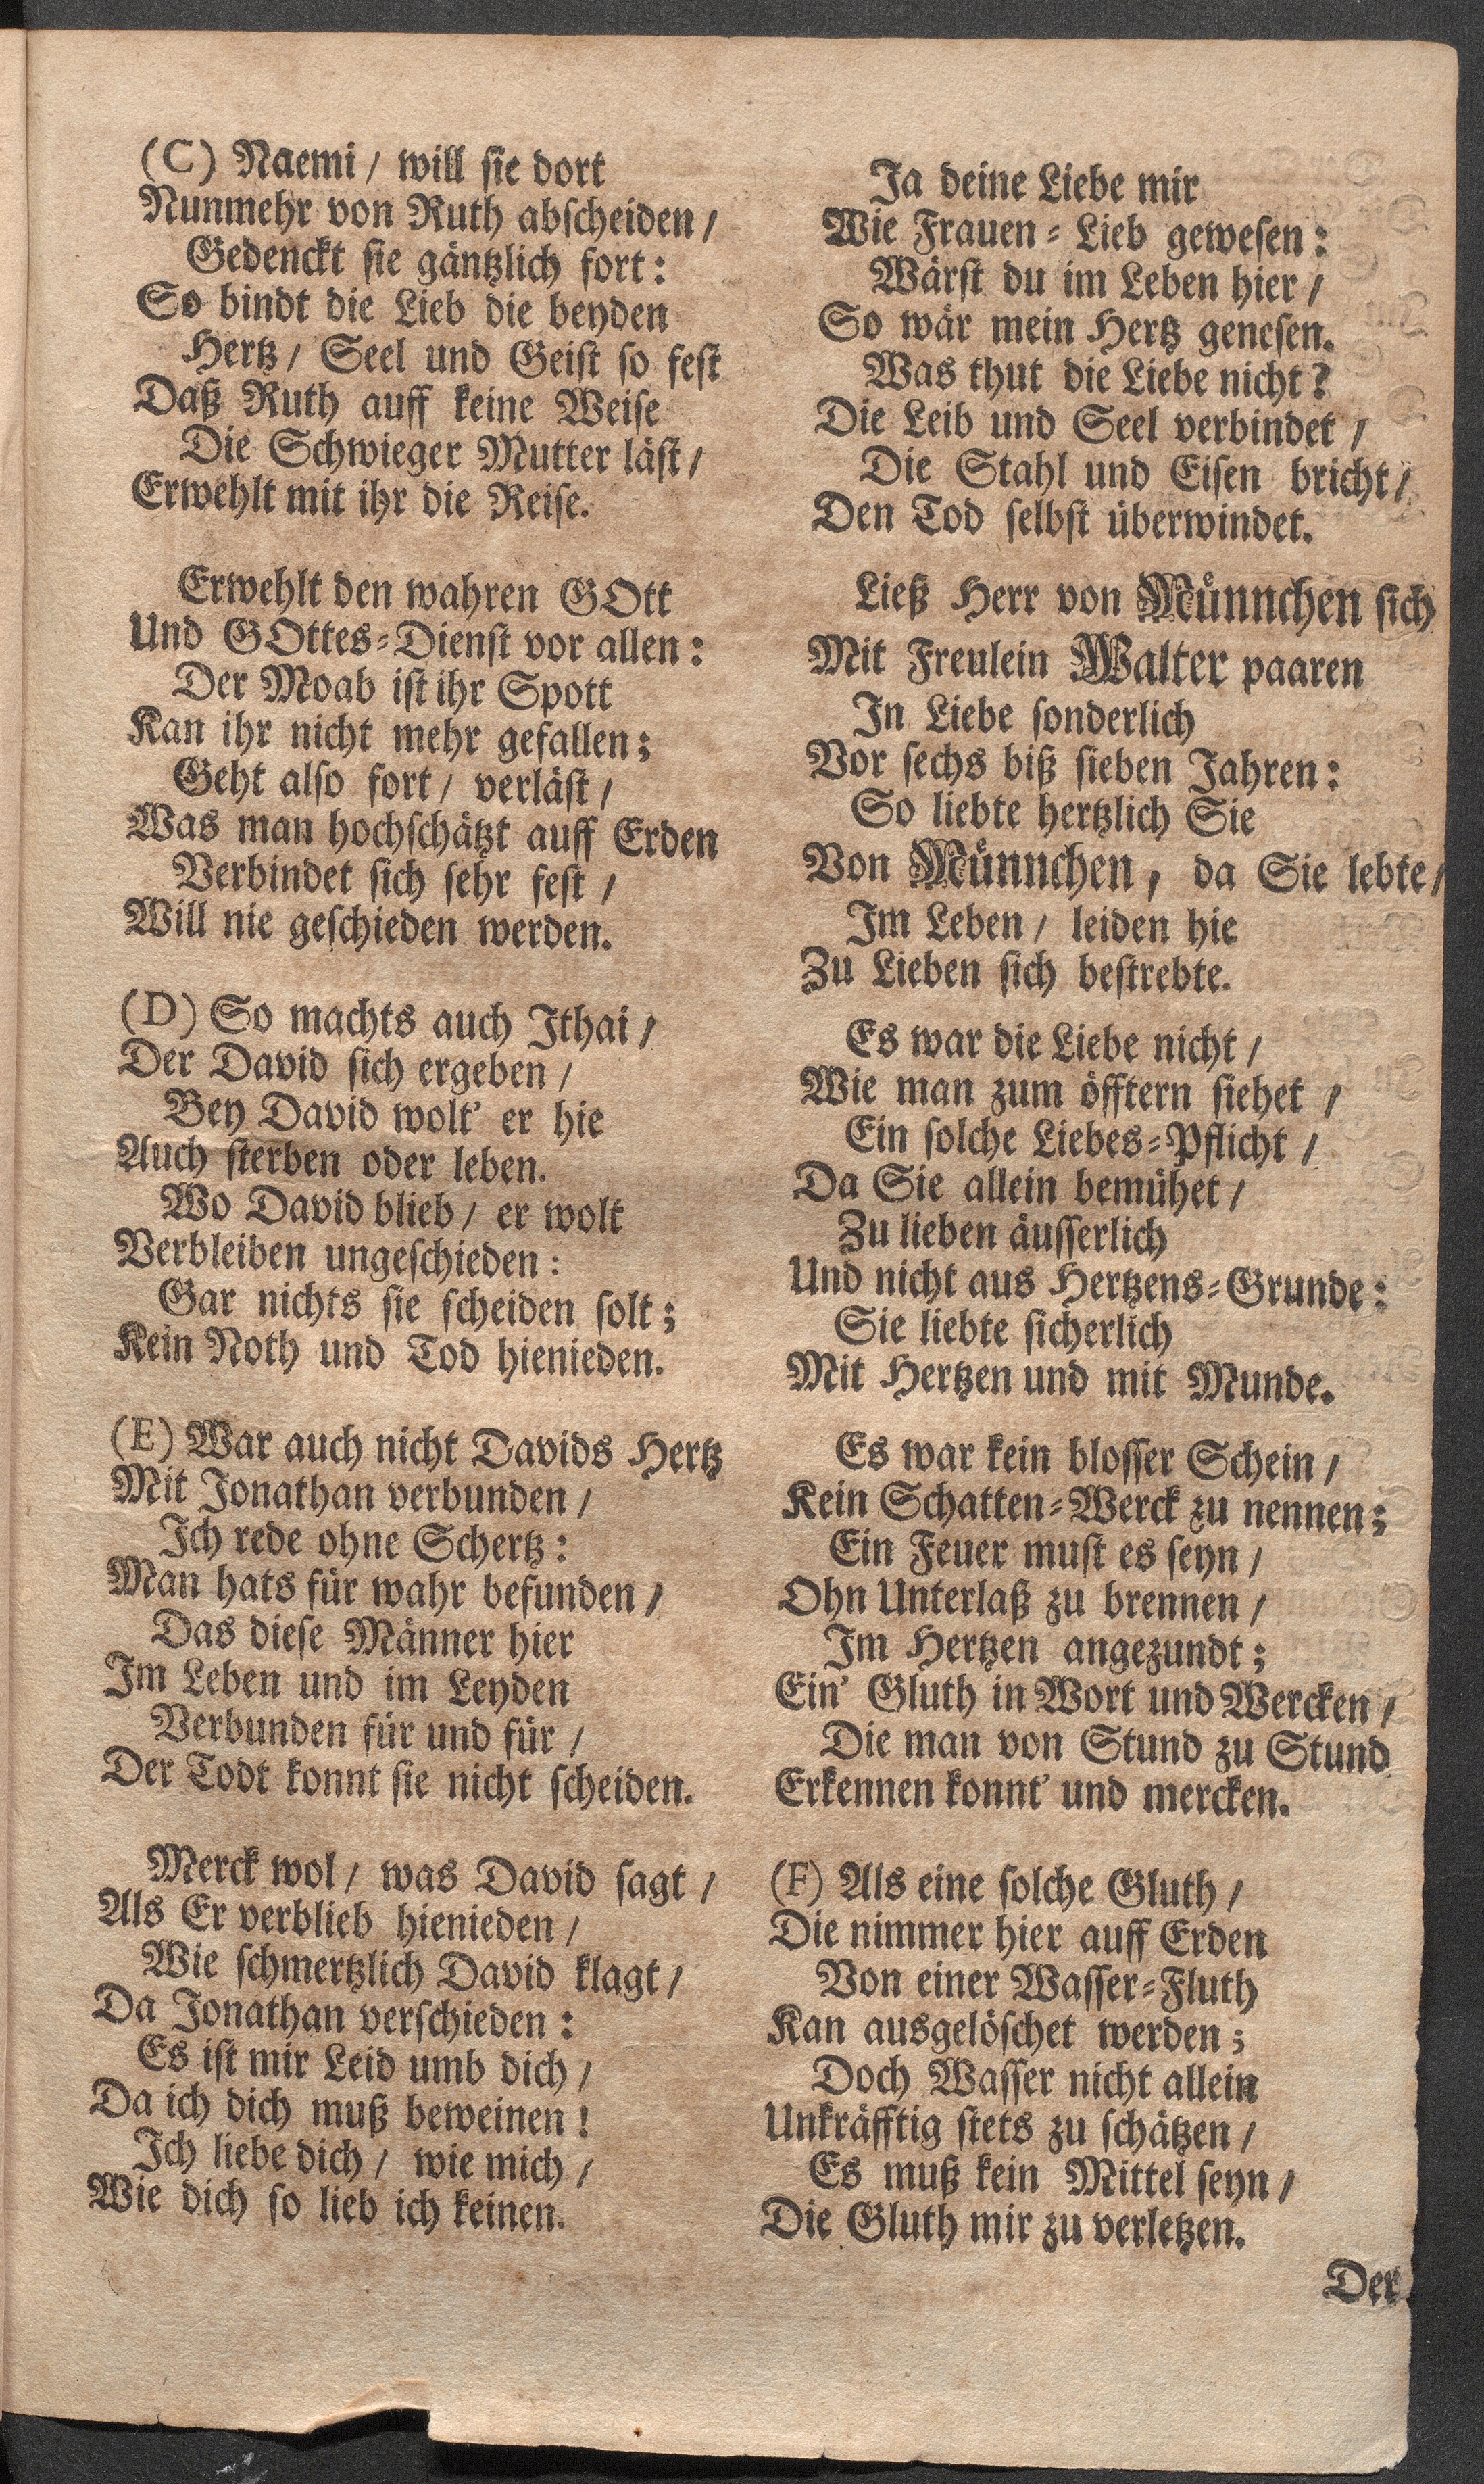 (C) Naemi / will sie dort
Nunmehr von Ruth abscheiden /
Gedenckt sie gäntzlich fort:
So bindt die Lieb die beyden
Hertz / Seel und Geist so fest
Daß Ruth auff keine Weise
Die Schwieger Mutter läst /
Erwehlt mit ihr die Reise.
Erwehlt den wahren GOtt
Und GOttes-Dienst vor allen:
Der Moab ist ihr Spott
Kan ihr nicht mehr gefallen;
Geht also fort / verläst /
Was man hochschätzt auff Erden
Verbindet sich sehr fest /
Will nie geschieden werden.
(D) So machts auch Ithai /
Der David sich ergeben /
Bey David wolt' er hie
Auch sterben oder leben.
Wo David blieb / er wolt
Verbleiben ungeschieden:
Gar nichts sie scheiden solt;
Kein Noth und Tod hienieden.
(E) War auch nicht Davids Hertz
Mit Jonathan verbunden /
Ich rede ohne Schertz:
Man hats für wahr befunden /
Das diese Männer hier
Im Leben und im Leyden
Verbunden für und für /
Der Todt konnt sie nicht scheiden.
Merck wol / was David sagt /
Als Er verblieb hienieden /
Wie schmertzlich David klagt /
Da Jonathan verschieden:
Es ist mir Leid umb dich /
Da ich dich muß beweinen!
Ich liebe dich / wie mich /
Wie dich so lieb ich keinen.
Ja deine Liebe mir
Wie Frauen-Lieb gewesen:
Wärst du im Leben hier /
So wär mein Hertz genesen.
Was thut die Liebe nicht?
Die Leib und Seel verbindet /
Die Stahl und Eisen bricht /
Den Tod selbst überwindet.
Ließ Herr von Münnchen sich
Mit Freulein Walter paaren
In Liebe sonderlich
Vor sechs biß sieben Jahren:
So liebte hertzlich Sie
Von Münnchen, da Sie lebte /
Im Leben / leiden hie
Zu Lieben sich bestrebte.
Es war die Liebe nicht /
Wie man zum öfftern siehet /
Ein solche Liebes-Pflicht /
Da Sie allein bemühet /
Zu lieben äusserlich
Und nicht aus Hertzens-Grunde:
Sie liebte sicherlich
Mit Hertzen und mit Munde.
Es war kein blosser Schein /
Kein Schatten-Werck zu nennen;
Ein Feuer must es seyn /
Ohn Unterlaß zu brennen /
Im Hertzen angezundt;
Ein' Gluth in Wort und Wercken /
Die man von Stund zu Stund
Erkennen konnt' und mercken.
(F) Als eine solche Gluth /
Die nimmer hier auff Erden
Von einer Wasser-Fluth
Kan ausgelöschet werden;
Doch Wasser nicht allein
Unkräfftig stets zu schätzen /
Es muß kein Mittel seyn /
Die Gluth mir zu verletzen.
Der